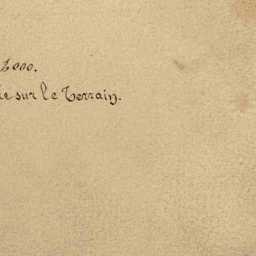 2000.
sur le Terrain.